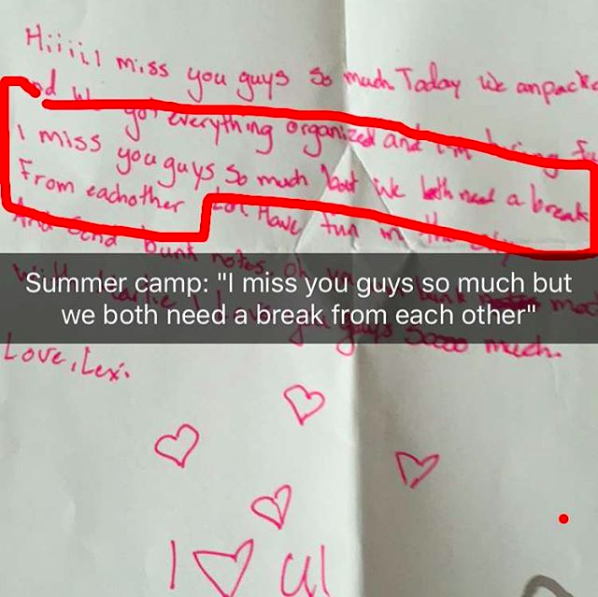 Hiiiii I miss you guys so much. Today we unpacke
got everything organized and I'm
I miss you guys so much but we both need a break
From eachother Have fun in the
And send bunk notes.
Summer camp: "I miss you guys so much but
we both need a break from each other"
guys Soooo much.
Love, Lexi
I ♡ U!